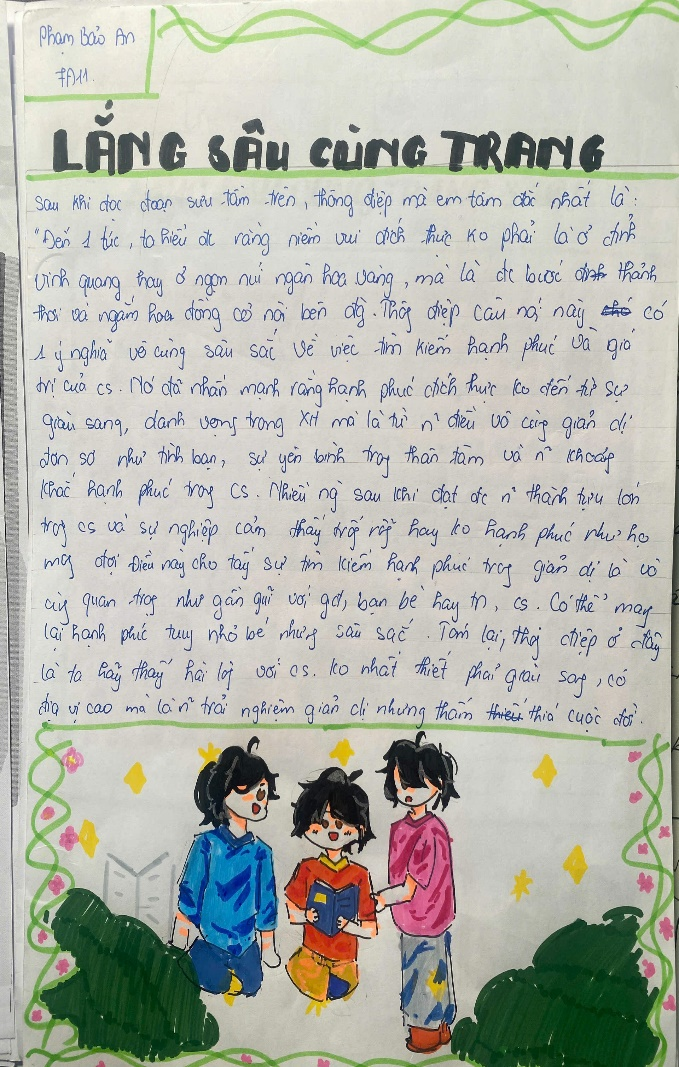 Phạm Bảo An
7A11.
LẮNG SÂU CÙNG TRANG
Sau khi đọc đoạn sưu tầm trên, thông điệp mà em tâm đắc nhất là:
"Đến 1 lúc, ta hiểu đc rằng niềm vui đích thực ko phải là ở đỉnh
vinh quang hay ở ngọn núi ngàn hoa vàng, mà là đc bước thảnh
thơi và ngắm hoa đồng cỏ nội bên đg. Thôg điệp câu nói này có
1 ý nghĩa vô cùng sâu sắc về việc tìm kiếm hạnh phúc và giá
trị của cs. Nó đã nhấn mạnh rằng hạnh phúc đích thực ko đến từ sự
giàu sang, danh vọng trong XH mà là từ n~ điều vô cùg giản dị
đơn sơ như tình bạn, sự yên bình trog thân tâm và n~ khoảng
khắc hạnh phúc trog cs. Nhiều ng sau khi đạt đc n~ thành tựu lớn
trog cs và sự nghiệp cảm thấy trốg rỗg hay ko hạnh phúc như họ
mog đợi Điều này cho tấy sự tìm kiếm hạnh phúc trog giản dị là vô
cùg quan trọg như gần gũi với gđ, bạn bè hay tn, cs. Có thể mag
lại hạnh phúc tuy nhỏ bé nhưng sâu sắc. Tóm lại, thôg điệp ở đây
là ta hãy thấy hài lòg với cs. ko nhất thiết phải giàu sag, có
địa vị cao mà là n~ trải nghiệm giản dị nhưng thấm thía cuộc đời.